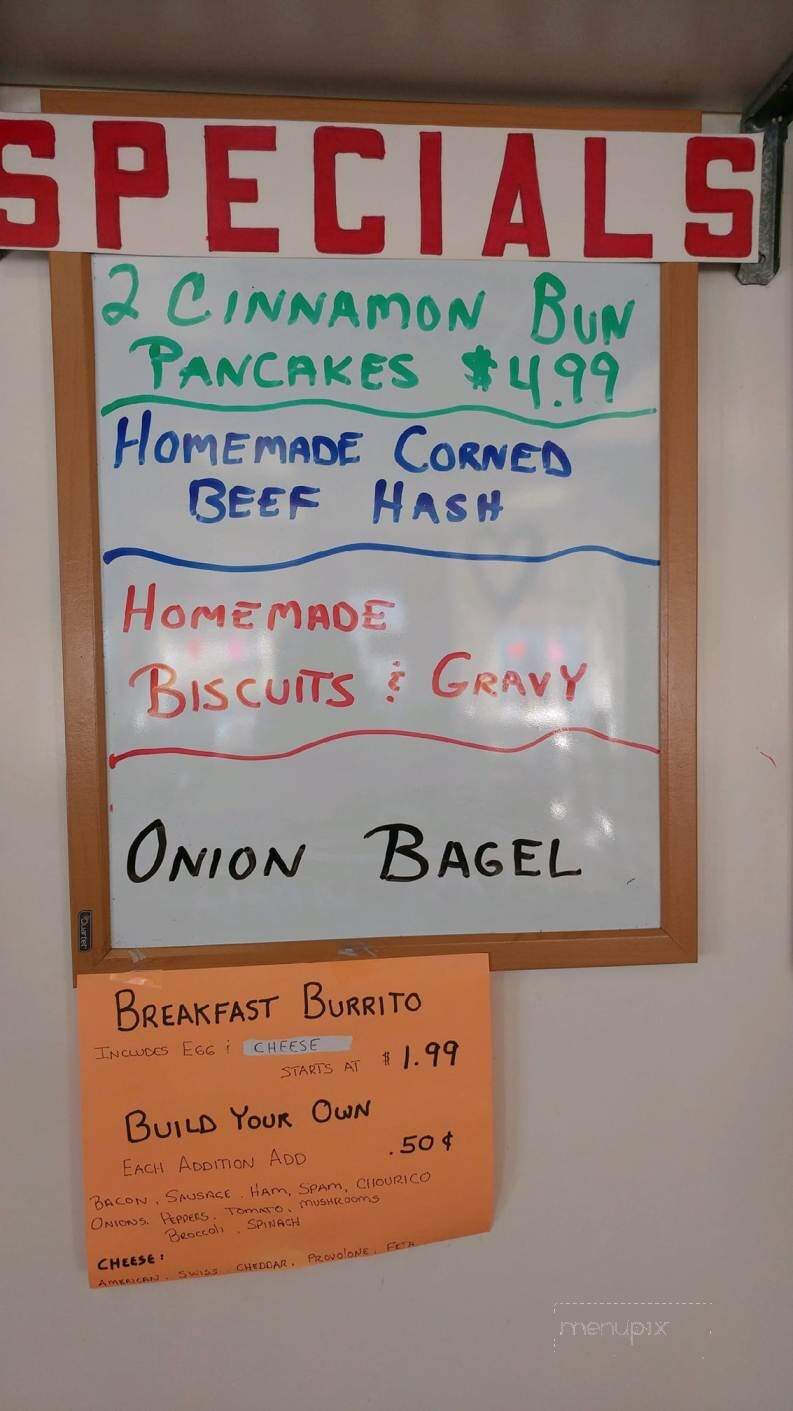 SPECIALS
2 CINNAMON BUN
PANCAKES $4.99
HOMEMADE CORNED
BEEF HASH
HOMEMADE
BISCUITS & GRAVY
ONION BAGEL
Quartet
BREAKFAST BURRITO
INCLUDES EGG & CHEESE
STARTS AT $1.99
BUILD YOUR OWN
EACH ADDITION ADD .50¢
BACON, SAUSAGE, HAM, SPAM, CHOURICO
ONIONS, PEPPERS, TOMATO, MUSHROOMS
BROCCOLI, SPINACH
CHEESE:
AMERICAN, SWISS, CHEDDAR, PROVOLONE, FETA
menupix